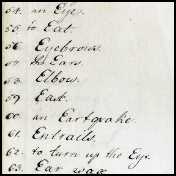 54. an Eye.
55. to Eat.
56. Eyebrows.
57. Ears.
58. Elbow.
59. East.
60. an Eartquake.
61. Entrails.
62. to turn up the Eye.
63. Ear wax